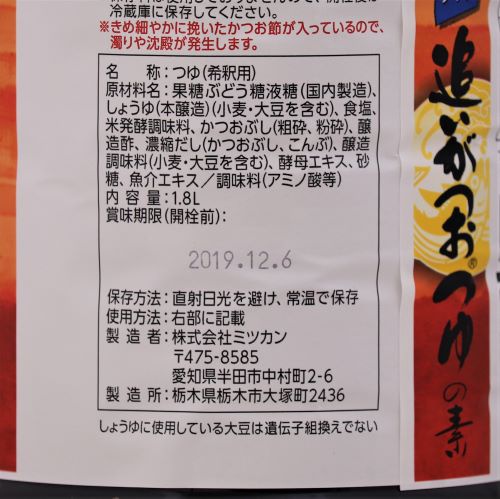 冷蔵庫に保存してください。
※きめ細やかに挽いたかつお節が入っているので、
濁りや沈殿が発生します。
名　　称：つゆ(希釈用)
原材料名：果糖ぶどう糖液糖(国内製造)、
しょうゆ(本醸造)(小麦・大豆を含む)、食塩、
米発酵調味料、かつおぶし(粗砕、粉砕)、醸
造酢、濃縮だし(かつおぶし、こんぶ)、醸造
調味料(小麦・大豆を含む)、酵母エキス、砂
糖、魚介エキス／調味料(アミノ酸等)
内 容 量：1.8L
賞味期限(開栓前)：
2019.12.6
保存方法：直射日光を避け、常温で保存
使用方法：右部に記載
製 造 者：株式会社ミツカン
〒475-8585
愛知県半田市中村町2-6
製 造 所：栃木県栃木市大塚町2436
しょうゆに使用している大豆は遺伝子組換えでない
追いがつお®つゆの素